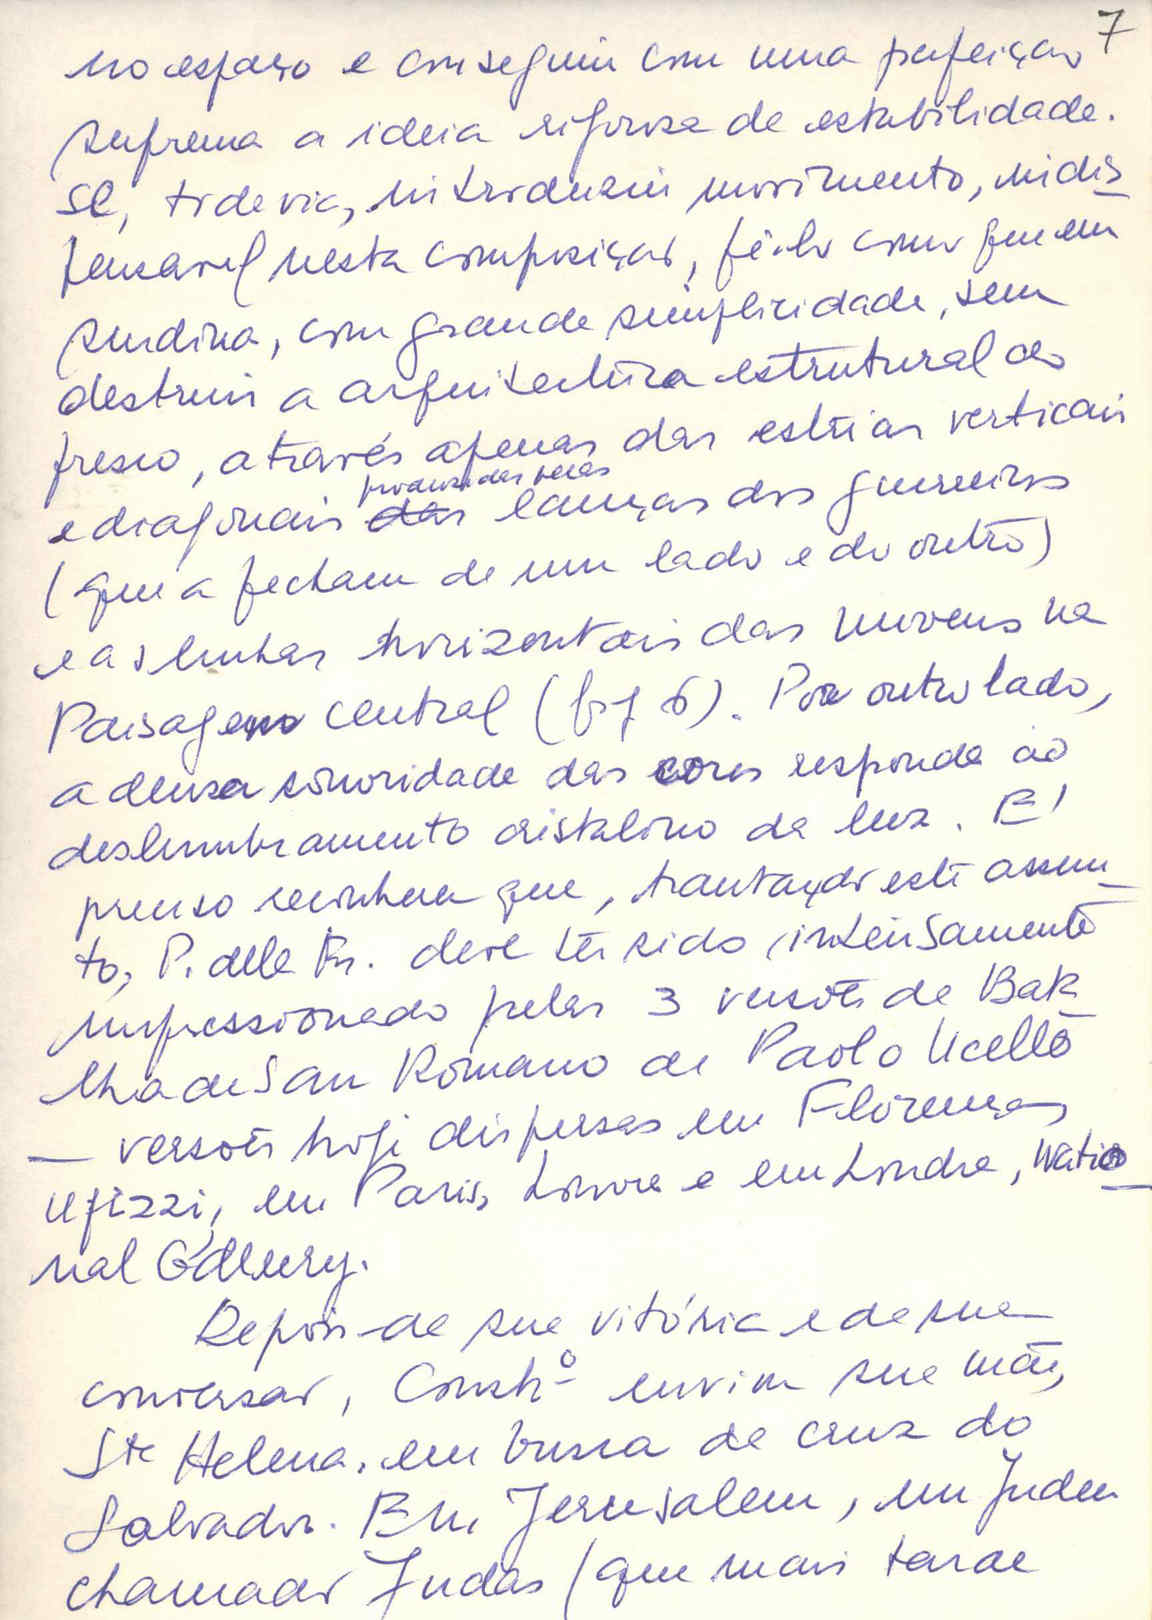 7
no espaço e conseguiu com uma perfeição
suprema a ideia rigorosa de estabilidade.
Se, todavia, introduziu movimento, indis
pensavel nesta composição, fê-lo como que em
surdina, com grande simplicidade, sem
destruir a arquitectura estrutural do
fresco, através apenas das estrias verticais
produzidas pelas
e diagonais das lanças dos guerreiros
(que a fecham de um lado e do outro)
e as linhas horizontais das nuvens na
Paisagem central (fig 6). Por outro lado,
a densa sonoridade das cores responde ao
deslumbramento cristalino da luz. E'
preciso reconhecer que, tratando este assun_
to, P. della Fr. deve ter sido intensamente
impressionado pelas 3 versões de Bata_
lha de San Romano de Paolo Ucello
— versões hoje dispersas em Florença,
Ufizzi, em Paris, Louvre e em Londres, Natio_
nal Gallery.
Depois de sua vitória e de sua
conversão, Constº enviou sua mãe,
Sta Helena, em busca da cruz do
Salvador. Em Jerusalem, um Judeu
chamado Judas (que mais tarde